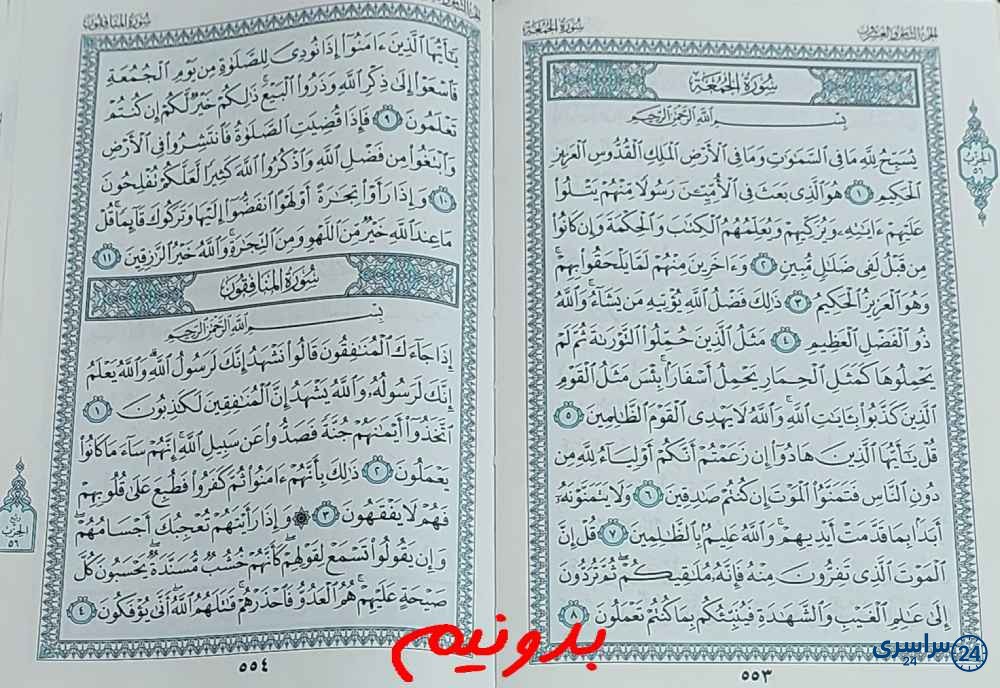 الجزء الثامن والعشرون
سورة الجمعة
سُورَةُ الجُمُعَةِ
بِسْمِ اللَّهِ الرَّحْمَٰنِ الرَّحِيمِ
يُسَبِّحُ لِلَّهِ مَا فِي السَّمَٰوَٰتِ وَمَا فِي الْأَرْضِ الْمَلِكِ الْقُدُّوسِ الْعَزِيزِ
الْحَكِيمِ ١ هُوَ الَّذِي بَعَثَ فِي الْأُمِّيِّـۧنَ رَسُولًا مِّنْهُمْ يَتْلُوا۟
عَلَيْهِمْ ءَايَٰتِهِۦ وَيُزَكِّيهِمْ وَيُعَلِّمُهُمُ الْكِتَٰبَ وَالْحِكْمَةَ وَإِن كَانُوا۟
مِن قَبْلُ لَفِي ضَلَٰلٍ مُّبِينٍ ٢ وَءَاخَرِينَ مِنْهُمْ لَمَّا يَلْحَقُوا۟ بِهِمْ ۚ
وَهُوَ الْعَزِيزُ الْحَكِيمُ ٣ ذَٰلِكَ فَضْلُ اللَّهِ يُؤْتِيهِ مَن يَشَآءُ ۚ وَاللَّهُ
ذُو الْفَضْلِ الْعَظِيمِ ٤ مَثَلُ الَّذِينَ حُمِّلُوا۟ التَّوْرَىٰةَ ثُمَّ لَمْ
يَحْمِلُوهَا كَمَثَلِ الْحِمَارِ يَحْمِلُ أَسْفَارًا ۚ بِئْسَ مَثَلُ الْقَوْمِ
الَّذِينَ كَذَّبُوا۟ بِـَٔايَٰتِ اللَّهِ ۚ وَاللَّهُ لَا يَهْدِي الْقَوْمَ الظَّٰلِمِينَ ٥
قُلْ يَٰٓأَيُّهَا الَّذِينَ هَادُوٓا۟ إِن زَعَمْتُمْ أَنَّكُمْ أَوْلِيَآءُ لِلَّهِ مِن
دُونِ النَّاسِ فَتَمَنَّوُا۟ الْمَوْتَ إِن كُنتُمْ صَٰدِقِينَ ٦ وَلَا يَتَمَنَّوْنَهُۥٓ
أَبَدًۢا بِمَا قَدَّمَتْ أَيْدِيهِمْ ۚ وَاللَّهُ عَلِيمٌۢ بِالظَّٰلِمِينَ ٧ قُلْ إِنَّ
الْمَوْتَ الَّذِي تَفِرُّونَ مِنْهُ فَإِنَّهُۥ مُلَٰقِيكُمْ ۖ ثُمَّ تُرَدُّونَ
إِلَىٰ عَٰلِمِ الْغَيْبِ وَالشَّهَٰدَةِ فَيُنَبِّئُكُم بِمَا كُنتُمْ تَعْمَلُونَ ٨
٥٥٣
الحزب
٥٦
سورة المنافقون
يَٰٓأَيُّهَا الَّذِينَ ءَامَنُوٓا۟ إِذَا نُودِيَ لِلصَّلَوٰةِ مِن يَوْمِ الْجُمُعَةِ
فَاسْعَوْا۟ إِلَىٰ ذِكْرِ اللَّهِ وَذَرُوا۟ الْبَيْعَ ۚ ذَٰلِكُمْ خَيْرٌ لَّكُمْ إِن كُنتُمْ
تَعْلَمُونَ ٩ فَإِذَا قُضِيَتِ الصَّلَوٰةُ فَانتَشِرُوا۟ فِي الْأَرْضِ
وَابْتَغُوا۟ مِن فَضْلِ اللَّهِ وَاذْكُرُوا۟ اللَّهَ كَثِيرًا لَّعَلَّكُمْ تُفْلِحُونَ
١٠ وَإِذَا رَأَوْا۟ تِجَٰرَةً أَوْ لَهْوًا انفَضُّوٓا۟ إِلَيْهَا وَتَرَكُوكَ قَآئِمًا ۚ قُلْ
مَا عِندَ اللَّهِ خَيْرٌ مِّنَ اللَّهْوِ وَمِنَ التِّجَٰرَةِ ۚ وَاللَّهُ خَيْرُ الرَّٰزِقِينَ ١١
سُورَةُ المُنَافِقُونَ
بِسْمِ اللَّهِ الرَّحْمَٰنِ الرَّحِيمِ
إِذَا جَآءَكَ الْمُنَٰفِقُونَ قَالُوا۟ نَشْهَدُ إِنَّكَ لَرَسُولُ اللَّهِ ۗ وَاللَّهُ يَعْلَمُ
إِنَّكَ لَرَسُولُهُۥ وَاللَّهُ يَشْهَدُ إِنَّ الْمُنَٰفِقِينَ لَكَٰذِبُونَ ١
اتَّخَذُوٓا۟ أَيْمَٰنَهُمْ جُنَّةً فَصَدُّوا۟ عَن سَبِيلِ اللَّهِ ۚ إِنَّهُمْ سَآءَ مَا كَانُوا۟
يَعْمَلُونَ ٢ ذَٰلِكَ بِأَنَّهُمْ ءَامَنُوا۟ ثُمَّ كَفَرُوا۟ فَطُبِعَ عَلَىٰ قُلُوبِهِمْ
فَهُمْ لَا يَفْقَهُونَ ٣ ۞ وَإِذَا رَأَيْتَهُمْ تُعْجِبُكَ أَجْسَامُهُمْ ۖ
وَإِن يَقُولُوا۟ تَسْمَعْ لِقَوْلِهِمْ ۖ كَأَنَّهُمْ خُشُبٌ مُّسَنَّدَةٌ ۖ يَحْسَبُونَ كُلَّ
صَيْحَةٍ عَلَيْهِمْ ۚ هُمُ الْعَدُوُّ فَاحْذَرْهُمْ ۚ قَٰتَلَهُمُ اللَّهُ ۖ أَنَّىٰ يُؤْفَكُونَ ٤
٥٥٤
الحزب
٥٦
بدونیم
سراسری 24
24